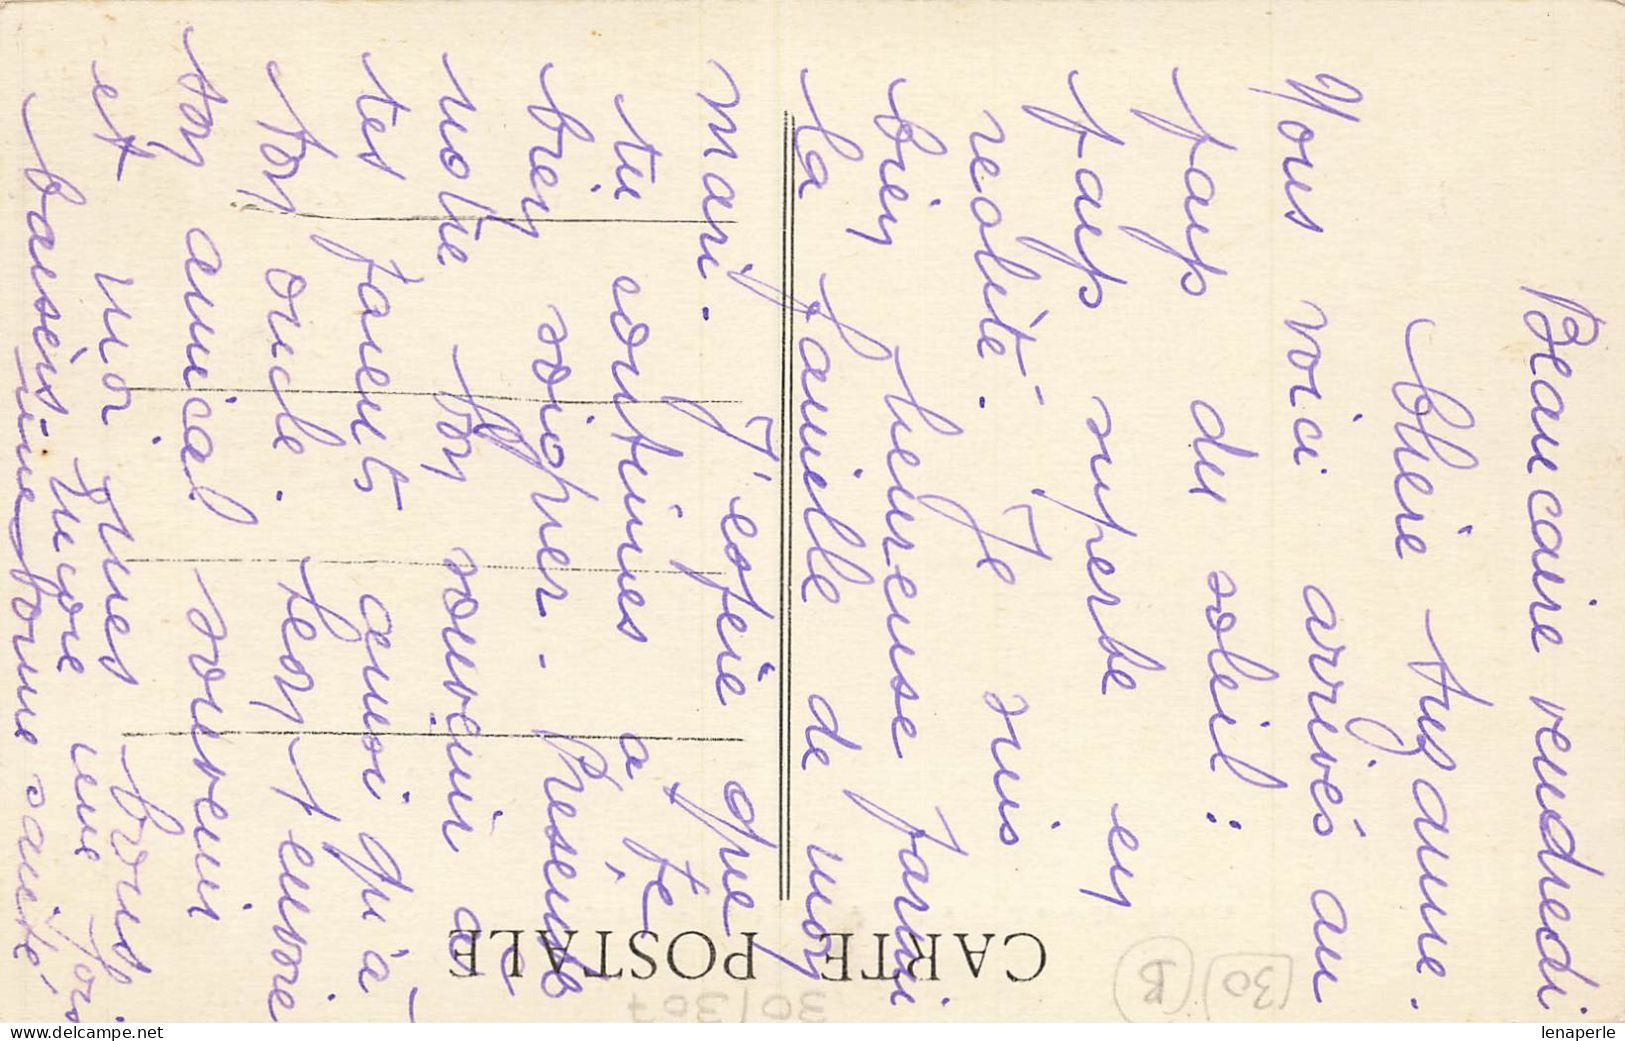 Beaucaire vendredi
Chère Suzanne.
Nous voici arrivés au
pays du soleil :
pays superbe en
realité. Je suis
bien heureuse parmi
la famille de mon
mari. J'espère que
tu continues à te
bien soigner. Présente
notre bon souvenir à
tes parents ainsi qu'à
ton oncle. Léon t'envoie
son amical souvenir
et moi mes bons
baisers. encore une fois
une bonne santé.
CARTE POSTALE
30/307
30
B
lenaperle
www.delcampe.net